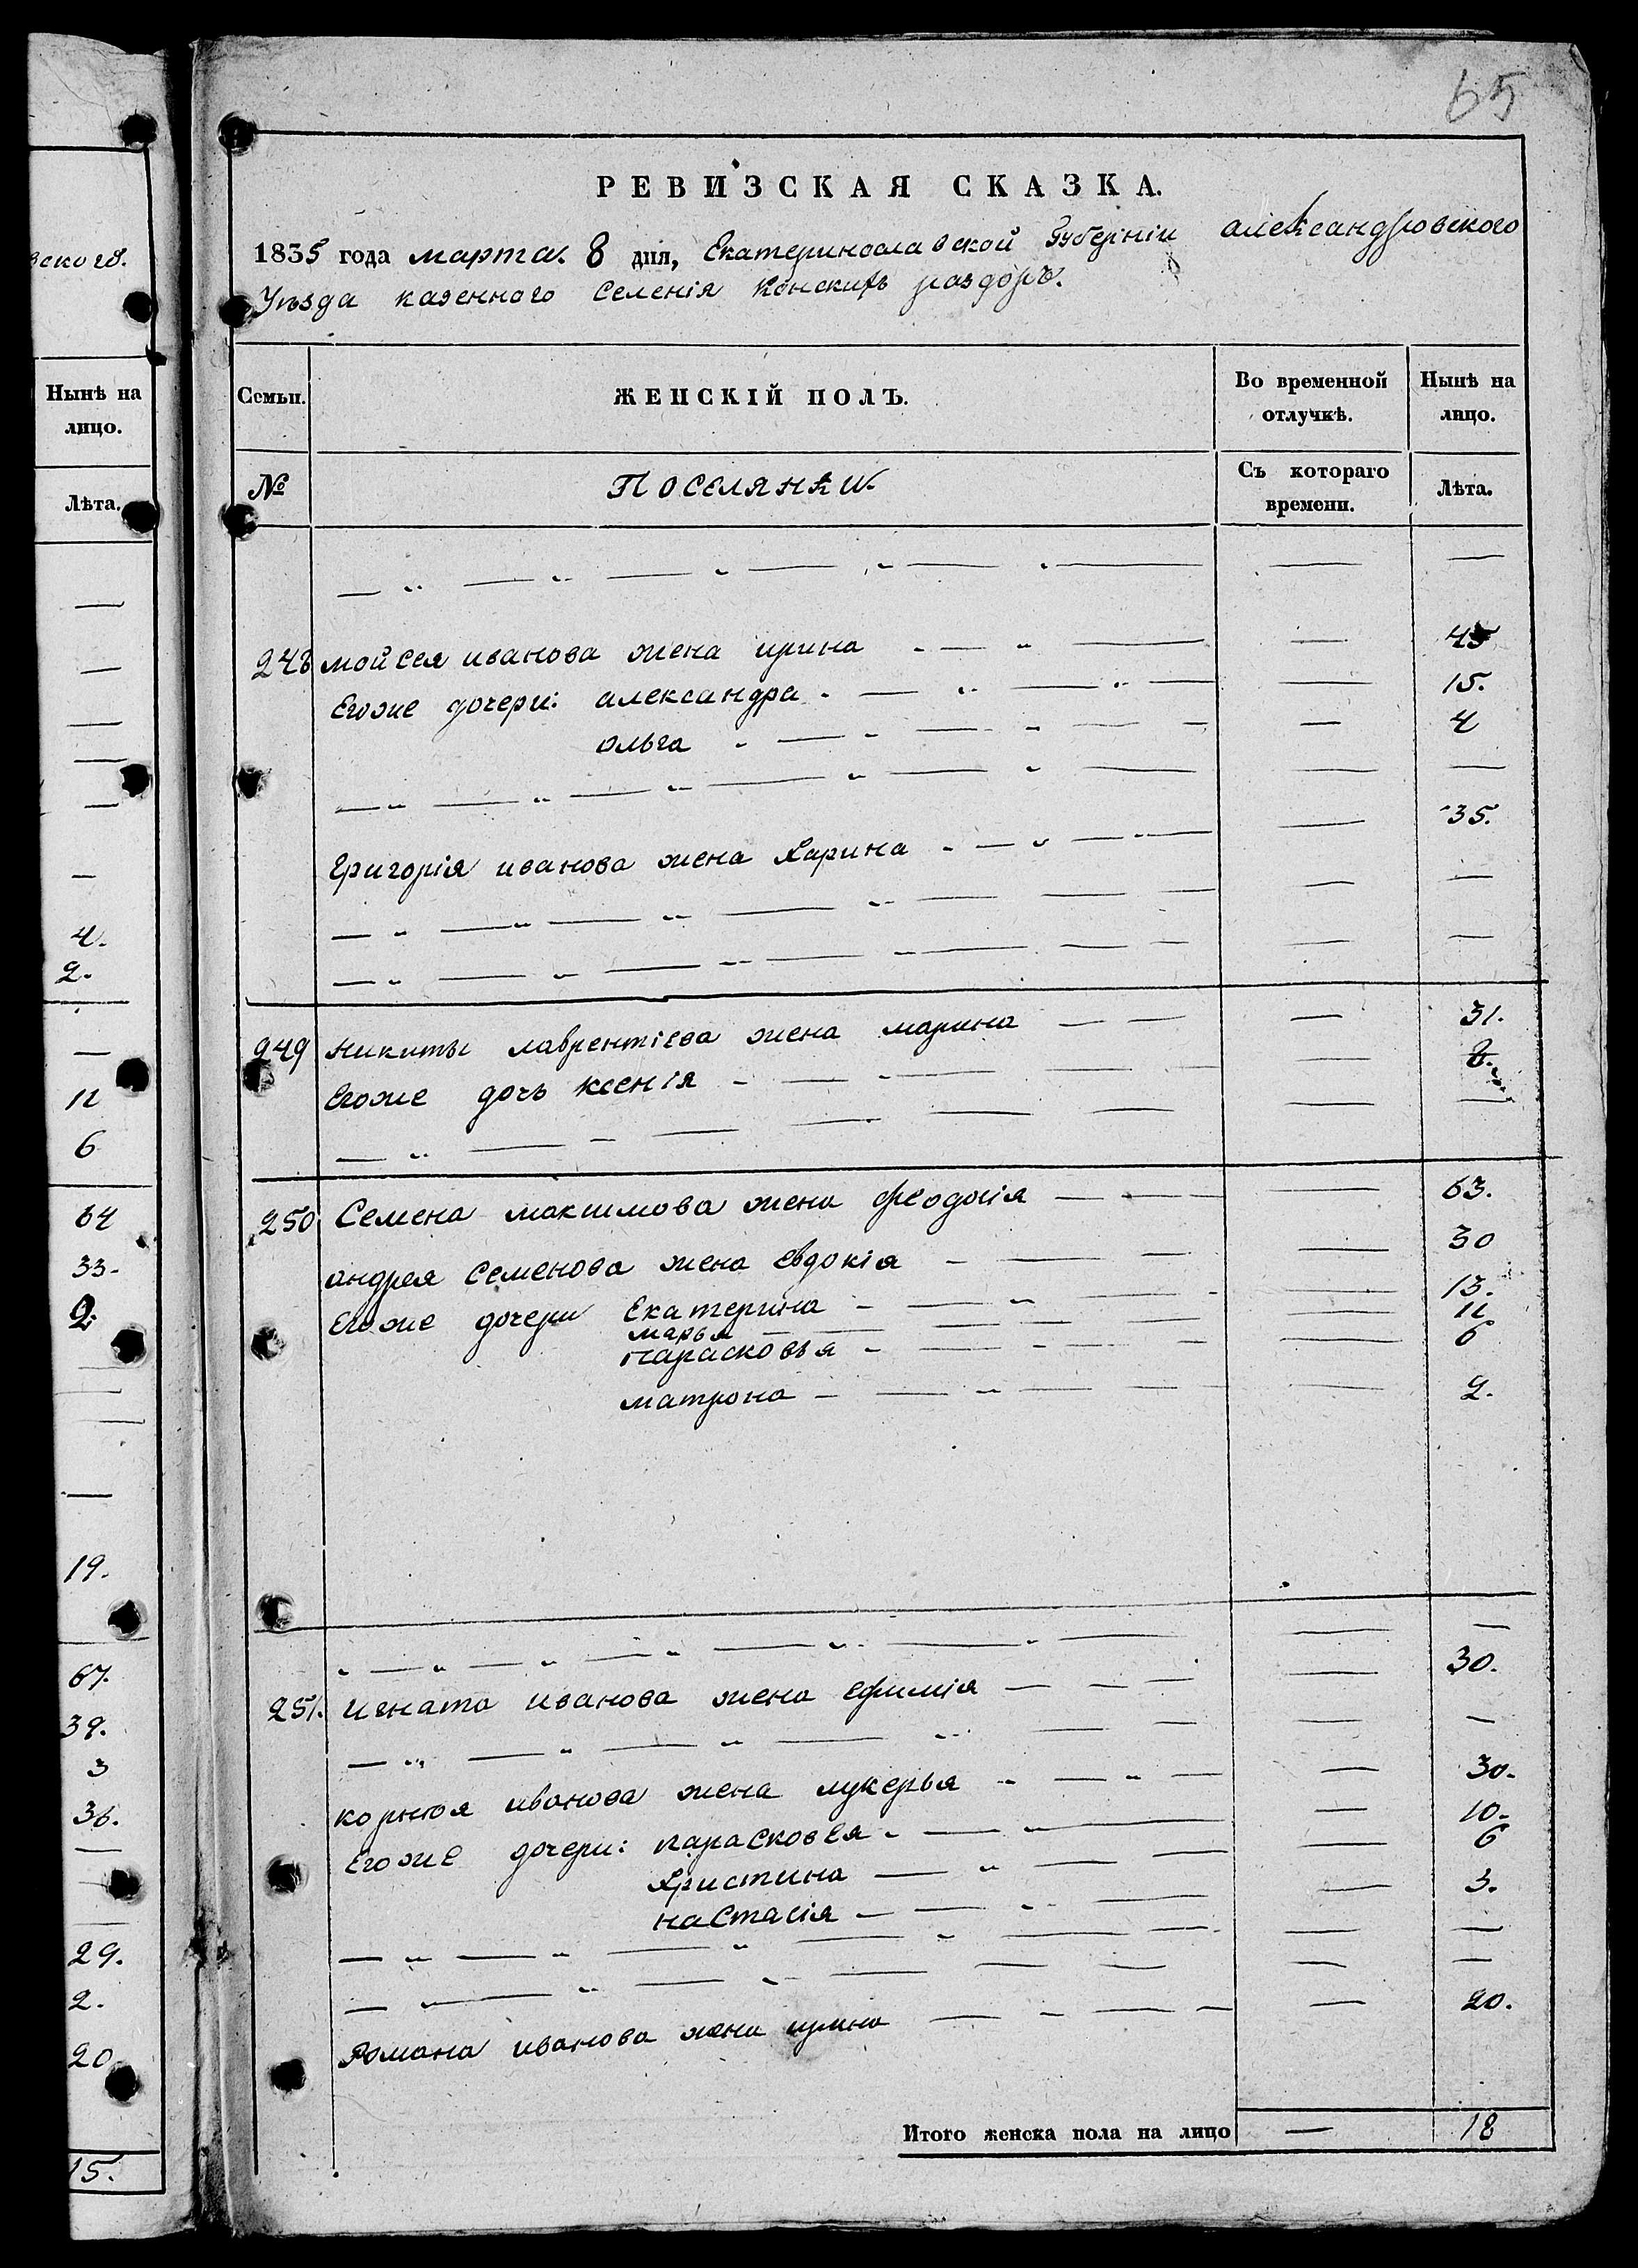 вского.
Нынѣ на
лицо.
Лѣта.
4.
2.
11
6
64
33.
2.
19.
67.
39.
3
36.
29.
2.
20
15.
65
РЕВИЗСКАЯ СКАЗКА.
1835 года марта 8 дня, Екатеринославской Губерніи александровского
Уѣзда казенного Селенія Конскихъ раздоръ.
Семьи. ЖЕНСКІЙ ПОЛЪ. Во временной отлучкѣ. Нынѣ на лицо.
№ Поселянки. Съ котораго времени. Лѣта.
248 мойсея иванова жена ирина — 45
Егоже дочери: александра — 15.
ольга — 4
Григорія иванова жена Харина — 35.
249 никиты лаврентіева жена марина — 31.
Егоже дочь ксенія — 8.
250 Семена максимова жена феодосія — 63.
андрея семенова жена Евдокія — 30
Егоже дочери Екатерина — 13.
марья — 11
парасковья — 6
матрона — 2.
251. игната иванова жена ефимія — 30.
корнѣя иванова жена лукерья — 30.
Егоже дочери: парасковея — 10.
Христина — 6
настасія — 3.
Романа иванова жена ирина — 20.
Итого женска пола на лицо — 18